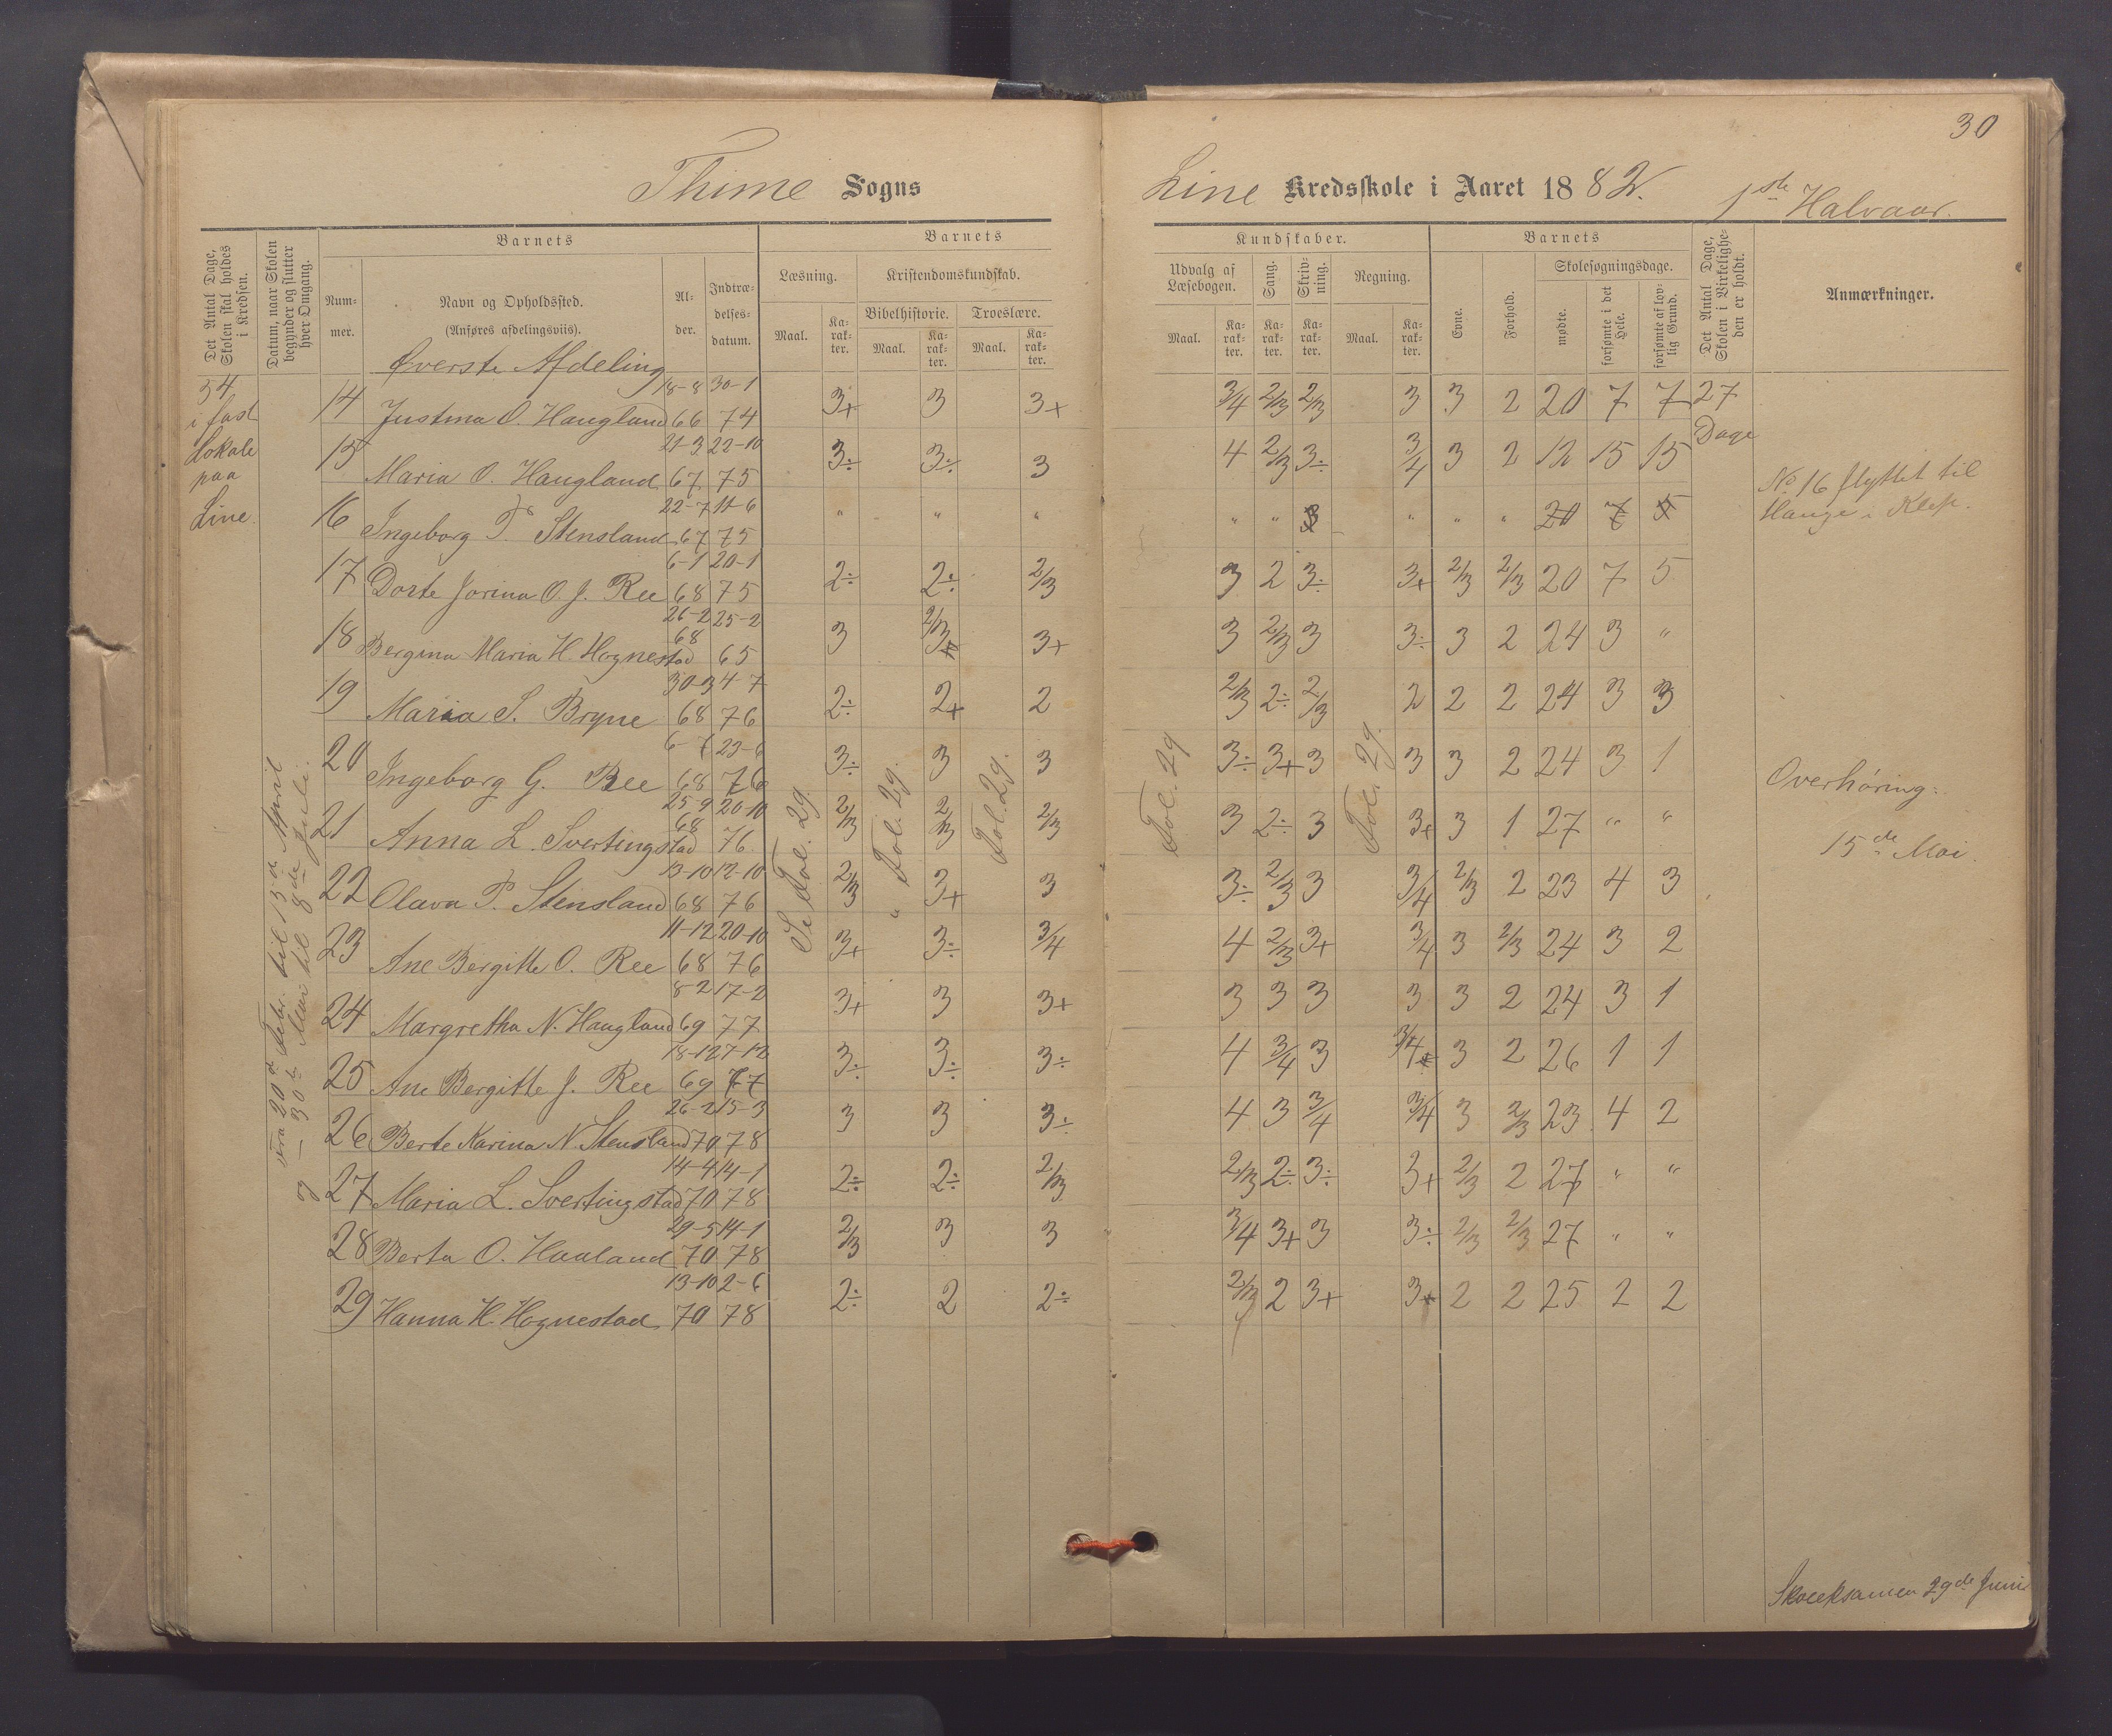 30
Thime Sogns
Line Kredsskole i Aaret 1882. 1ste Halvaar.
Det Antal Dage, Skolen skal holdes i Kredsen.
Datum, naar Skolen begynder og slutter hver Omgang.
Barnets
Nummer.
Navn og Opholdssted.
(Anføres afdelingsviis).
Alder.
Indtrædelsesdatum.
Barnets
Læsning.
Kristendomskundskab.
Bibelhistorie.
Troeslære.
Maal. Karakter. Maal. Karakter. Maal. Karakter.
Kundskaber.
Udvalg af Læsebogen.
Sang.
Skrivning.
Regning.
Maal. Karakter. Karakter. Karakter. Maal. Karakter.
Barnets
Evne.
Forhold.
Skolesøgningsdage.
mødte.
forsømte i det Hele.
forsømte af lovlig Grund.
Det Antal Dage, Skolen i Virkeligheden er holdt.
Anmærkninger.
Øverste Afdeling
34
i fast
Lokale
paa
Line.
fra 20de Febr. til 15de April
og — 30te Mai til 8de Juli.
14 Justina O. Haugland 18-8 66 30-1 74 3+ 3 3+ 3/4 2/3 2/3 3 3 2 20 7 7 27 Dage
15 Maria O. Haugland 21-3 67 22-10 75 3÷ 3÷ 3 4 2/3 3÷ 3/4 3 2 12 15 15
16 Ingeborg T. Stensland 22-7 67 11-6 75 " " " " " 3 " " " 20 7 5
No 16 flyttet til
Hauge i Klep.
17 Dorte Jorina O. J. Ree 6-1 68 20-1 75 2÷ 2÷ 2/3 3 2 3÷ 3+ 2/3 2/3 20 7 5
18 Bergina Maria H. Hognestad 26-2 68 25-2 65 3 2/3 3+ 3 2/3 3 3÷ 3 2 24 3 "
19 Maria S. Bryne 30-3 68 4-7 76 2÷ 2+ 2 2/3 2÷ 2/3 2 2 2 24 3 3
20 Ingeborg G. Ree 6-7 68 23-6 76 3÷ 3 3 3÷ 3+ 3 3 3 2 24 3 1
Overhøring:
15de Mai.
21 Anna L. Svertingstad 25-9 68 20-10 76. 2/3 2/3 2/3 3 2÷ 3 3+ 3 1 27 " "
22 Olava T. Stensland 13-10 68 12-10 76 2/3 3+ 3 3÷ 2/3 3 3/4 2/3 2 23 4 3
23 Ane Bergitte O. Ree 11-12 68 20-10 76 3+ 3÷ 3/4 4 2/3 3+ 3/4 3 2/3 24 3 2
24 Margretha N. Haugland 8-2 69 17-2 77 3+ 3 3+ 3 3 3 3 3 2 24 3 1
25 Ane Bergitte J. Ree 18-12 69 7-12 77 3÷ 3÷ 3÷ 4 3/4 3 3/4 3 2 26 1 1
26 Berte Karina N. Stensland 26-2 70 15-3 78 3 3 3÷ 4 3 3/4 3/4 3 2/3 23 4 2
27 Maria L. Svertingstad 14-4 70 14-1 78 2÷ 2÷ 2/3 2/3 2÷ 3÷ 3+ 2/3 2 27 " "
28 Berta O. Haaland 29-5 70 14-1 78 2/3 3 3 3/4 3+ 3 3÷ 2/3 2/3 27 " "
29 Hanna H. Hognestad 13-10 70 2-6 78 2÷ 2 2÷ 2/3 2 3+ 3+ 2 2 25 2 2
Se Fol. 29.
" Fol. 29.
Fol. 29.
Fol. 29
Fol. 29.
Skoleksamen 29de Juni